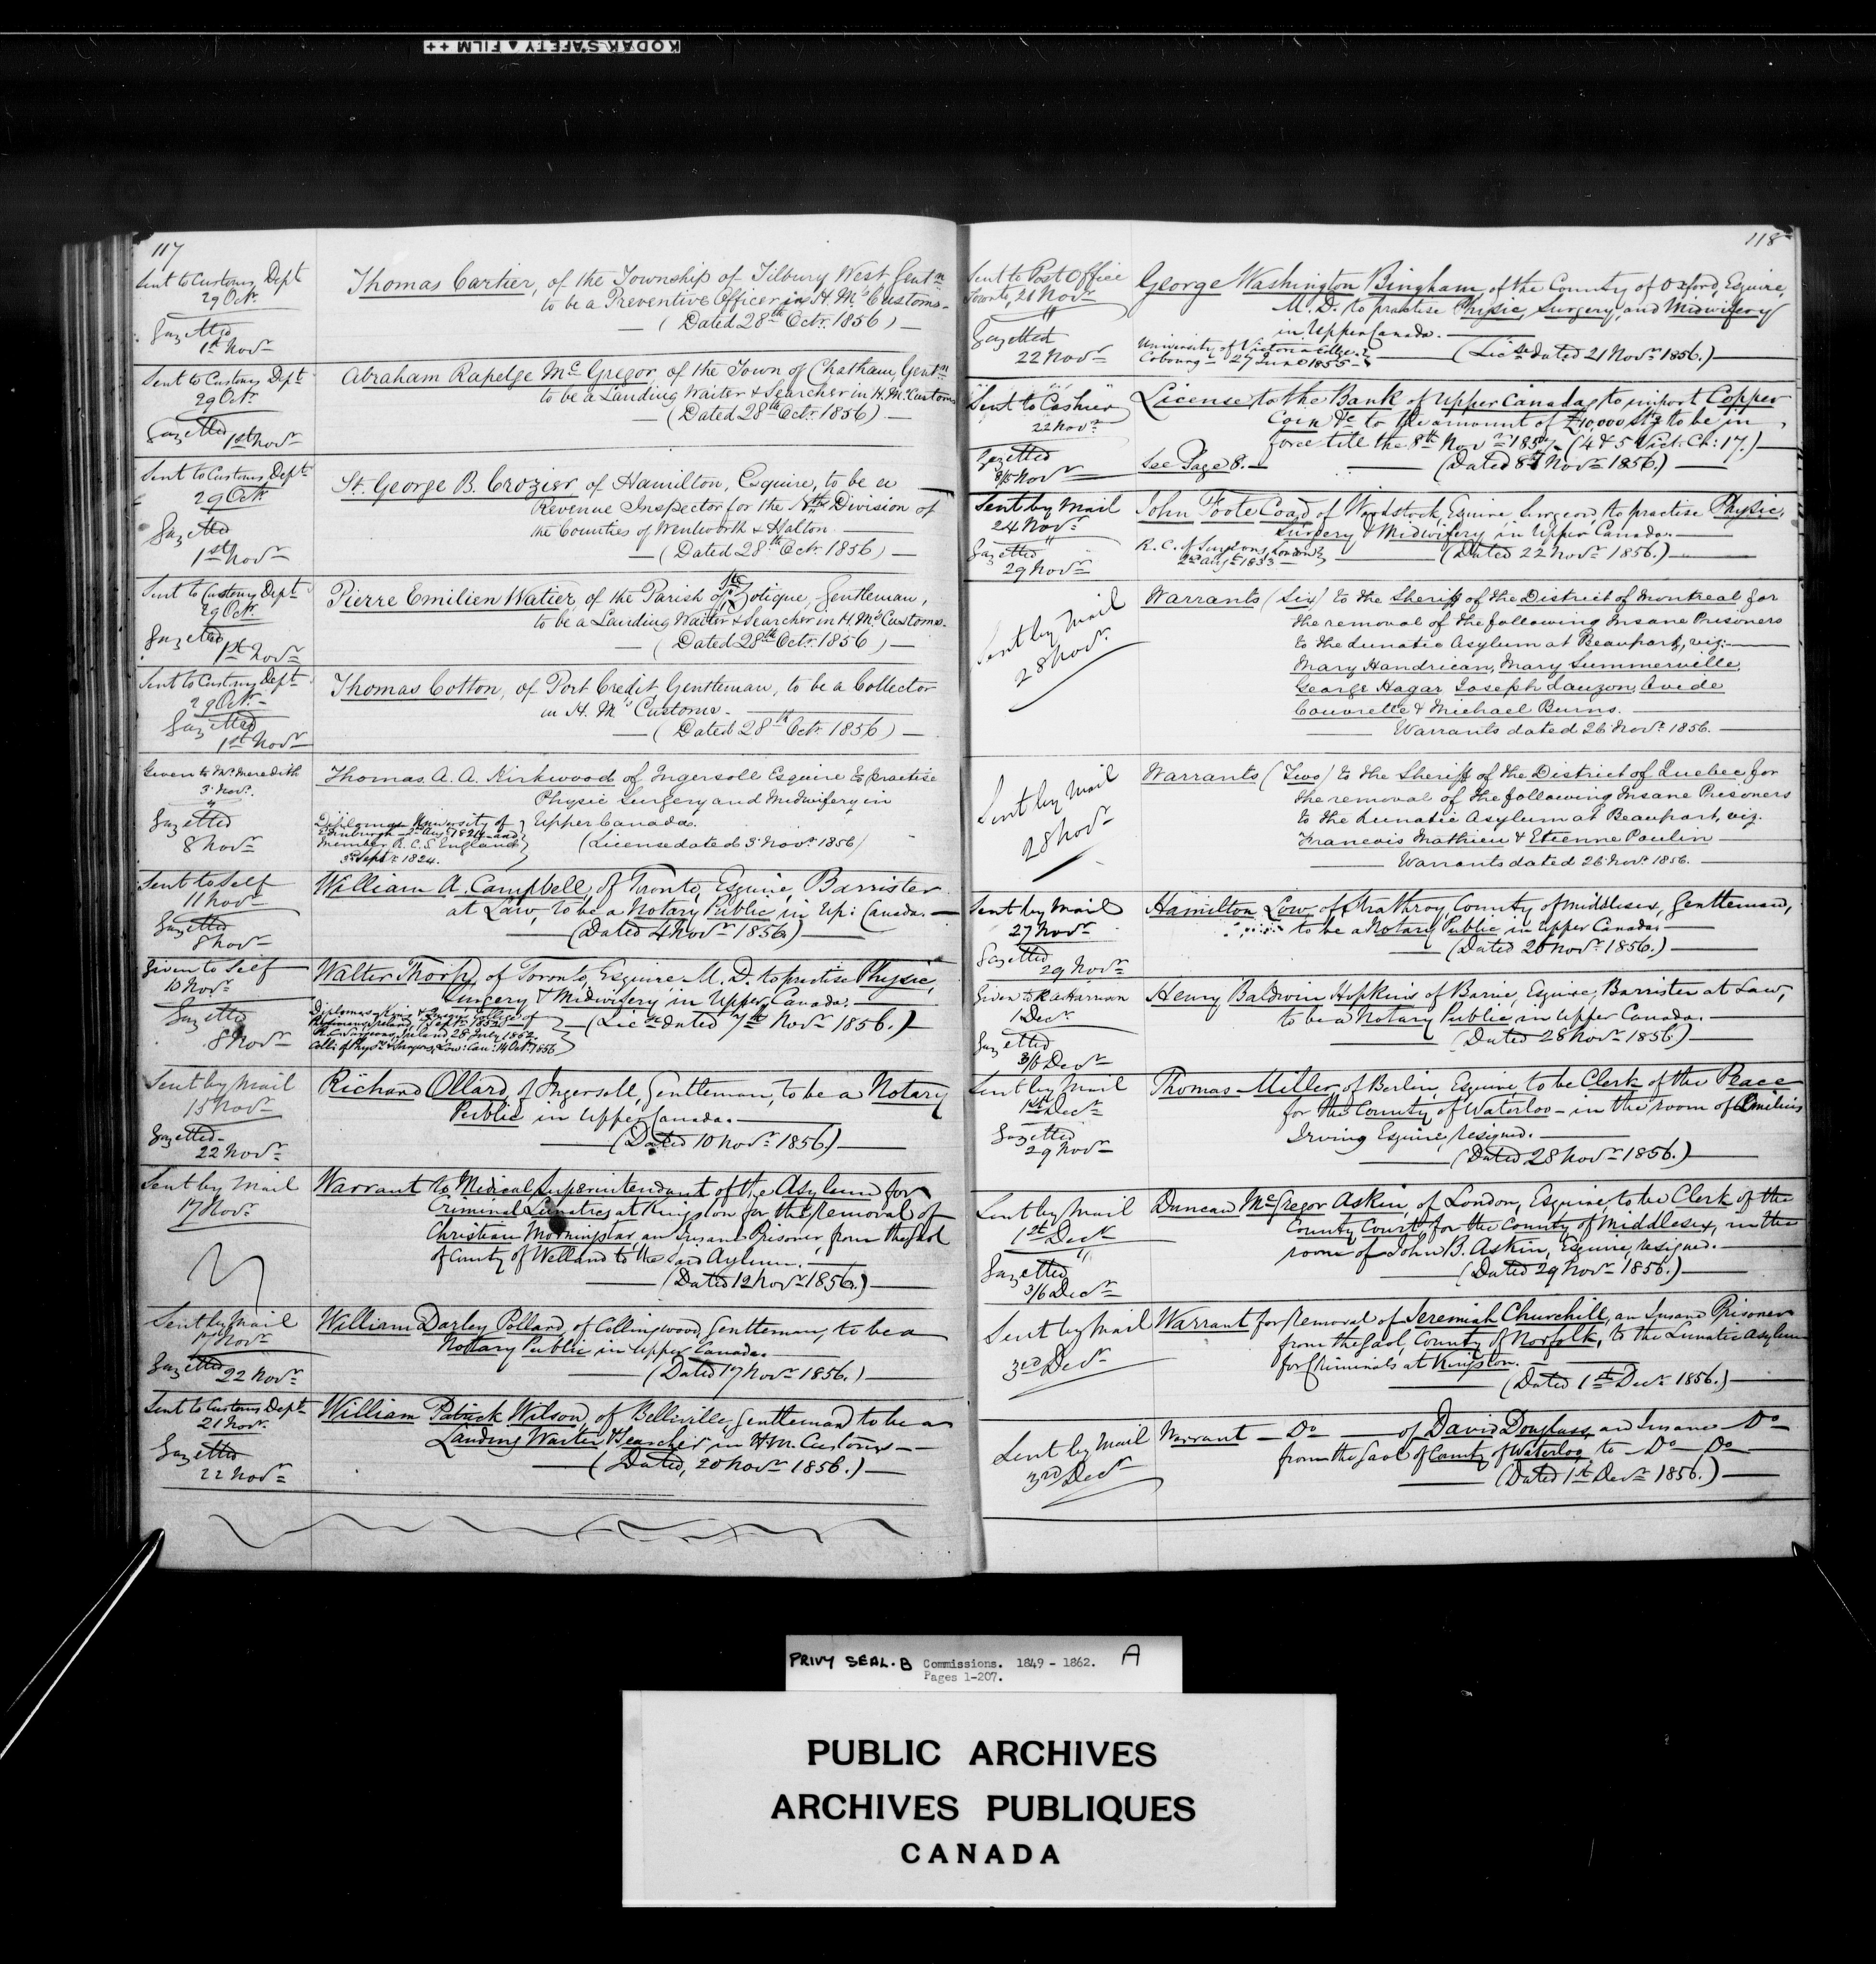 KODAK SAFETY ▲ FILM ++
117
Sent to Customs Dept
29 Octr
Gazetted
1st Novr
Thomas Cartier, of the Township of Tilbury West Gentn
to be a Preventive Officer in H. M's Customs.
(Dated 28th Octr. 1856)
Sent to Customs Dept
29 Octr.
Gazetted
1st Novr
Abraham Rapelge Mc Gregor of the Town of Chatham, Gentn
to be a Landing Waiter & Searcher in H. M. Customs
(Dated 28th Octr. 1856)
Sent to Customs Dept
29 Octr
Gazetted
1st Novr
St. George B. Crozier of Hamilton, Esquire, to be a
Revenue Inspector for the Nth Division of
the Counties of Wentworth & Halton.
(Dated 28th Octr. 1856)
Sent to Customs Dept
29 Octr.
Gazetted
1st Novr
Pierre Emilien Watier, of the Parish of Ste Zotique, Gentleman,
to be a Landing Waiter & Searcher in H. M's Customs.
(Dated 28th Octr. 1856)
Sent to Customs Dept
29 Octr.
Gazetted
1st Novr
Thomas Cotton, of Port Credit, Gentleman, to be a Collector
in H. M's Customs.
(Dated 28th Octr. 1856)
Given to Mr Meredith
3 Novr.
Gazetted
8 Novr
Thomas A. A. Kirkwood of Ingersoll Esquire to practise
Physic Surgery and Midwifery in
Upper Canada.
Diplomas University of
Edinburgh 2nd Aug. 1824 and
Member R. C. S. England
3 Septr. 1824.
(License dated 3 Novr. 1856)
Sent to Self
11 Novr
Gazetted
8 Novr
William A. Campbell, of Toronto, Esquire, Barrister
at Law, to be a Notary Public in Up: Canada.
(Dated 4 Novr. 1856)
Given to Self
10 Novr
Gazetted
8 Novr
Walter Thorp, of Toronto, Esquire M. D. to practise Physic,
Surgery & Midwifery in Upper Canada.
Diplomas King & Queen's College of
Physicians, Ireland, Septr. 1852
R. C. Surgeons, Ireland, 28 July 1852.
Coll: of Physns & Surgeons, Low: Can: 14 Octr. 1856
(Licse dated 7th Novr. 1856.)
Sent by Mail
15 Novr
Gazetted
22 Novr
Richard Ollard, of Ingersoll, Gentleman, to be a Notary
Public in Upper Canada.
(Dated 10 Novr. 1856)
Sent by Mail
17 Novr.
Warrant to Medical Superintendant of the Asylum for
Criminal Lunatics at Kingston for the removal of
Christian Morningstar, an Insane Prisoner, from the Gaol
of County of Welland to the said Aylum.
(Dated 12 Novr. 1856.)
Sent by Mail
17 Novr
Gazetted
22 Novr
William Darley Pollard, of Collingwood, Gentleman, to be a
Notary Public in Upper Canada.
(Dated 17 Novr. 1856.)
Sent to Customs Dept
21 Novr.
Gazetted
22 Novr
William Patrick Wilson, of Belleville, Gentleman to be a
Landing Waiter & Searcher in H. M. Customs
(Dated, 20 Novr. 1856.)
118
Sent to Post Office
Toronto, 21 Novr
Gazetted
22 Novr
George Washington Bingham, of the County of Oxford, Esquire,
M. D. to practise Physic, Surgery, and Midwifery
in Upper Canada.
University of Victoria College
Cobourg 27 June 1855
(Licse dated 21 Novr. 1856.)
Sent to Cashier
22 Novr
Gazetted
8/15 Novr
License to the Bank of Upper Canada, to import Copper
Coin &c to the amount of £10,000 Stg to be in
force till the 8th Novr 1857. (4 & 5 Vict. Ch: 17.)
See Page 8.
(Dated 8th Novr. 1856.)
Sent by Mail
24 Novr
Gazetted
29 Novr
John Foote Coad of Woodstock, Esquire Surgeon, to practise Physic,
Surgery & Midwifery, in Upper Canada.
R. C. of Surgeons, London
2nd Augt. 1833
(Dated 22 Novr. 1856.)
Sent by Mail
28 Novr.
Warrants (Six) to the Sheriff of the District of Montreal for
the removal of the following Insane Prisoners
to the Lunatic Asylum at Beauport, viz:
Mary Handrican, Mary Summerville,
George Hagar, Joseph Lauzon, Ovide
Couvrette & Michael Burns.
Warrants dated 26 Novr. 1856.
Sent by Mail
28 Novr
Warrants (Two) to the Sheriff of the District of Quebec for
the removal of the following Insane Prisoners
to the Lunatic Asylum at Beauport, viz.
Francois Mathieu & Etienne Paulin
Warrants dated 26 Novr. 1856.
Sent by Mail
27 Novr
Gazetted
29 Novr
Hamilton Low, of Strathroy, County of Middlesex, Gentleman,
to be a Notary Public in Upper Canada.
(Dated 26 Novr. 1856.)
Given to R. A. Harrison
1 Decr.
Gazetted
3/6 Decr
Henry Baldwin Hopkins of Barrie, Esquire, Barrister at Law,
to be a Notary Public in Upper Canada.
(Dated 28 Novr. 1856)
Sent by Mail
1st Decr
Gazetted
29 Novr
Thomas Miller, of Berlin, Esquire, to be Clerk of the Peace
for the County of Waterloo in the room of Æmilius
Irving Esquire, resigned.
(Dated 28 Novr. 1856.)
Sent by Mail
1st Decr
Gazetted
3/6 Decr
Duncan McGregor Askin, of London, Esquire, to be Clerk of the
County Court, for the County of Middlesex, in the
room of John B. Askin, Esquire, resigned.
(Dated 29 Novr. 1856.)
Sent by Mail
3rd Decr
Warrant for removal of Jeremiah Churchill, an Insane Prisoner
from the Gaol, County of Norfolk, to the Lunatic Asylum
for Criminals at Kingston.
(Dated 1st Decr 1856.)
Sent by Mail
3rd Decr
Warrant Do of David Douglass, an Insane Do
from the Gaol of County of Waterloo, to Do Do
(Dated 1st Decr 1856.)
PRIVY SEAL. B Commissions. 1849 - 1862. A
Pages 1-207.
PUBLIC ARCHIVES
ARCHIVES PUBLIQUES
CANADA